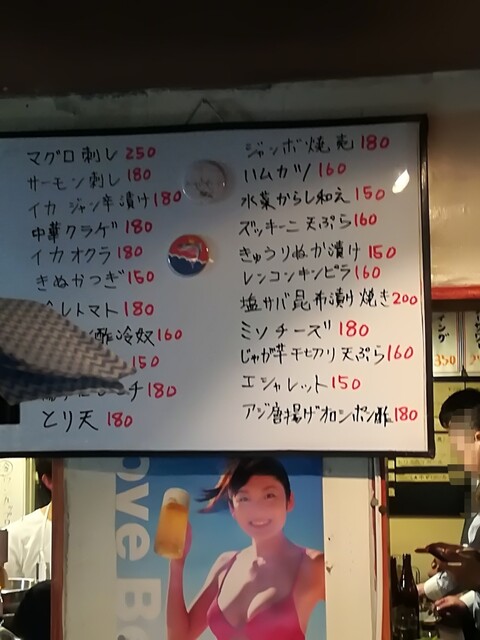 マグロ刺し 250
サーモン刺し 180
イカ ジャン辛漬け 180
中華クラゲ 180
イカオクラ 180
きぬかつぎ 150
レトマト 180
酢冷奴 160
150
チ 180
とり天 180
ジャンボ焼売 180
ハムカツ 160
水菜からし和え 150
ズッキーニ天ぷら 160
きゅうりぬか漬け 150
レンコンキンピラ 160
塩サバ昆布漬け焼き 200
ミソチーズ 180
じゃが芋千切り天ぷら 160
エシャレット 150
アジ唐揚げオロシポン酢 180
ove B
ング
350